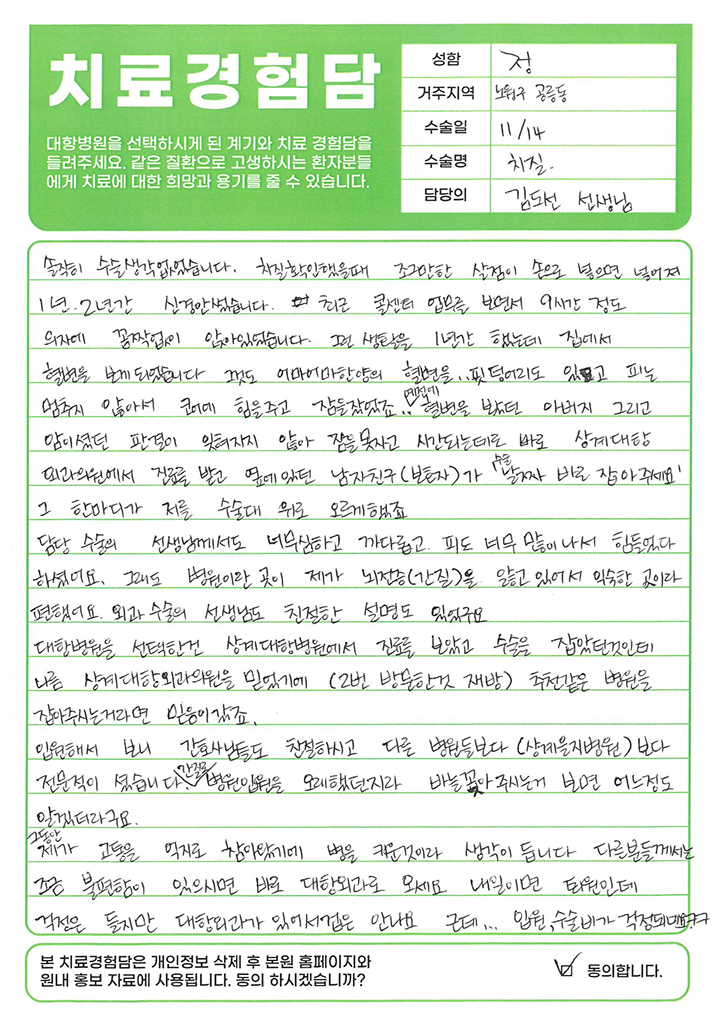 치료경험담
대항병원을 선택하시게 된 계기와 치료 경험담을
들려주세요. 같은 질환으로 고생하시는 환자분들
에게 치료에 대한 희망과 용기를 줄 수 있습니다.
성함 정
거주지역 노원구 공릉동
수술일 11/14
수술명 치질.
담당의 김도선 선생님
솔직히 수술생각없었습니다. 치질확인했을때 조그만한 살점이 손으로 넣으면 넣어져
1년. 2년간 신경안썼습니다. 최근 콜센터 업무를 보면서 9시간 정도
의자에 꼼짝없이 앉아있었습니다. 그런 생활을 1년간 했는데 집에서
혈변을 보게 되었습니다 그것도 어마어마한양의 혈변을.. 핏덩어리도 있고 피는
멈추지 않아서 코어에 힘을주고 잠들잤었죠.. 예전에 혈변을 보았던 아버지 그리고
암이셨던 판결이 잊혀지지 않아 잠을못자고 시간되는데로 바로 상계대항
외과의원에서 진료를 받고 옆에있던 남자친구(보호자)가 '수술 날짜 바로 잡아주세요'
그 한마디가 저를 수술대 위로 오르게했죠
담당 수술의 선생님께서도 너무심하고 까다롭고. 피도 너무 많이나서 힘들었다
하셨어요. 그래도 병원이란 곳이 제가 뇌전증(간질)을 앓고있어서 익숙한 곳이라
편했어요. 외과 수술의 선생님도 친절한 설명도 있었구요
대항병원을 선택한건 상계대항병원에서 진료를 보았고 수술을 잡았던것인데
나름 상계대항외과의원을 믿었기에 (2번 방문한것 재방) 추천같은 병원을
잡아주시는거라면 믿음이갔죠.
입원해서 보니 간호사님들도 친절하시고 다른 병원들보다 (상계을지병원)보다
전문적이 셨습니다. 간질로 병원입원을 오래했던지라 바늘꽂아주시는거 보면 어느정도
알겠더라구요.
그동안 제가 고통을 억지로 참아왔기에 병을 키운것이라 생각이 듭니다 다른분들께서는
조금 불편함이 있으시면 바로 대항외과로 오세요 내일이면 퇴원인데
걱정은 들지만 대항외과가 있어서 겁은 안나요 근데... 입원,수술비가 걱정되네요ㅋㅋ
본 치료경험담은 개인정보 삭제 후 본원 홈페이지와
원내 홍보 자료에 사용됩니다. 동의 하시겠습니까?
동의합니다.